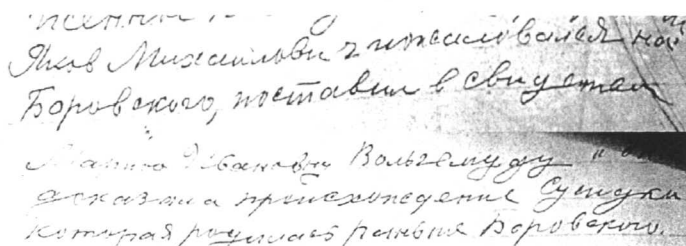 Яков Михайлович пожаловался на
Боровского, поставил в свидетели
Марию Ивановну Вольгемуду и
доказала происхождение Сучугки
которая родилась раньше Боровского.